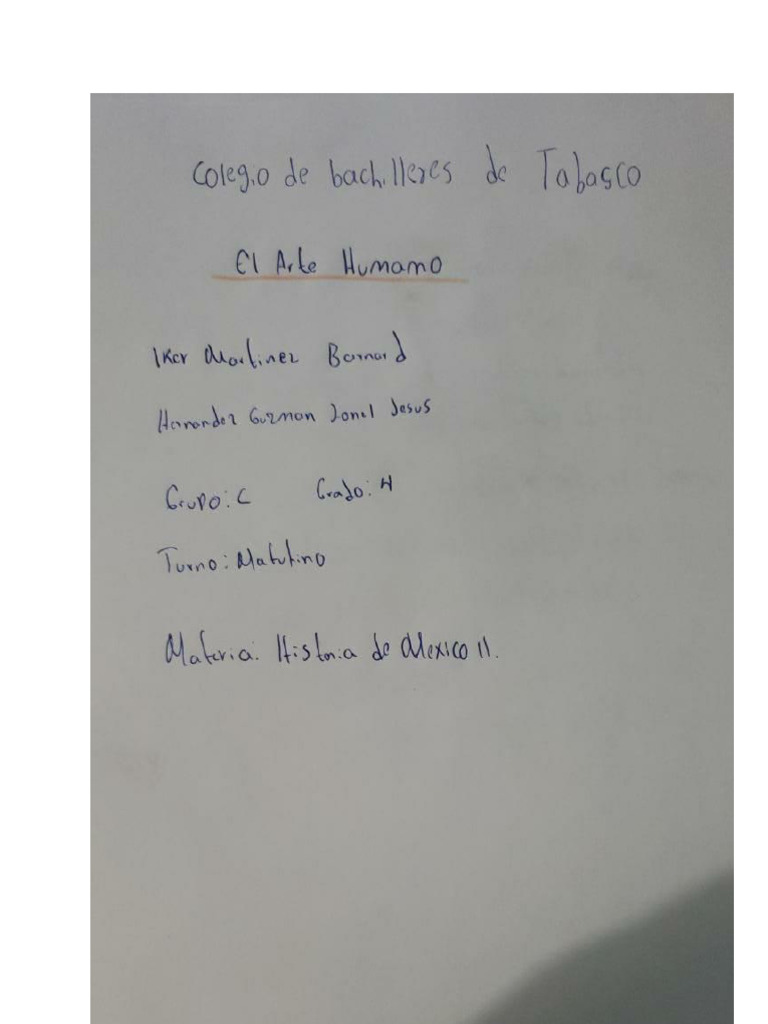 Colegio de bachilleres de Tabasco
El Arte Humamo
Iker Martinez Bernard
Hernandez Guzman Jonel Jesus
Grupo: C Grado: 4
Turno: Matutino
Materia: Historia de Mexico II.